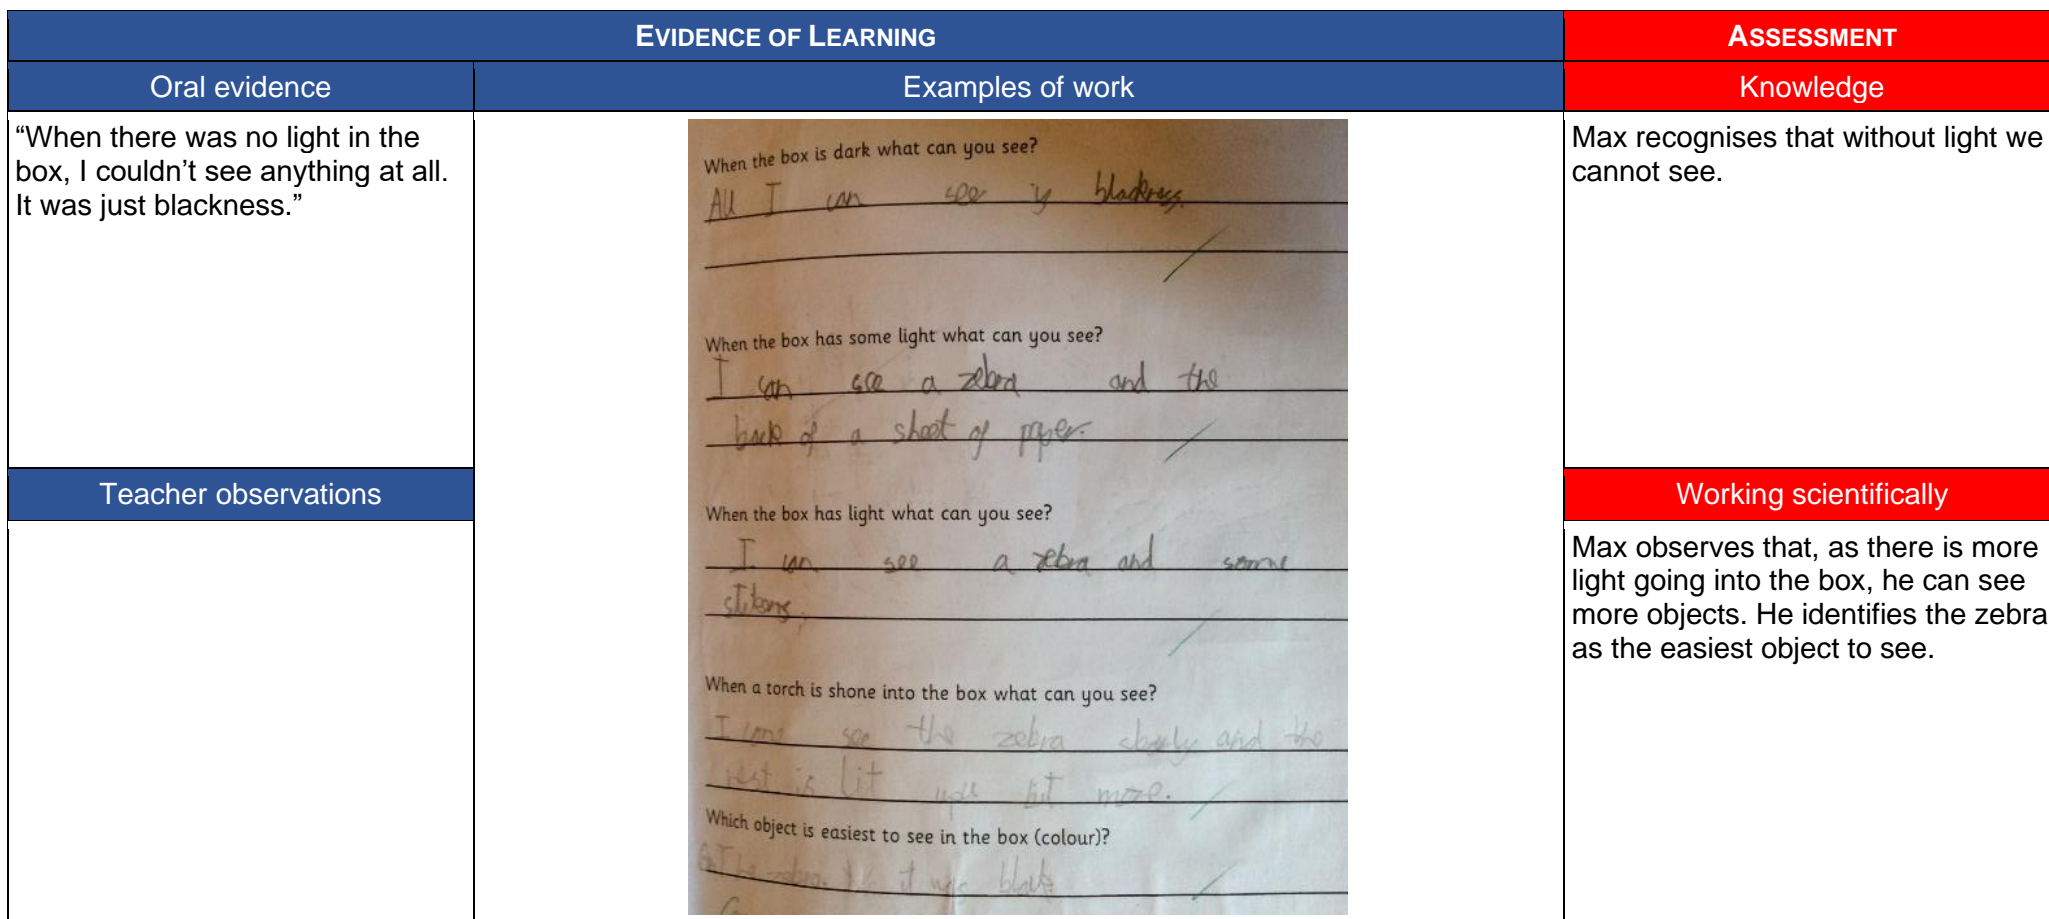 EVIDENCE OF LEARNING
ASSESSMENT
Oral evidence
Examples of work
Knowledge
“When there was no light in the
box, I couldn’t see anything at all.
It was just blackness.”
Teacher observations
When the box is dark what can you see?
All I can see is blackness.
When the box has some light what can you see?
I can see a zebra and the
back of a sheet of paper.
When the box has light what can you see?
I can see a zebra and some
When a torch is shone into the box what can you see?
I see the zebra and the
rest is lit bit more.
Which object is easiest to see in the box (colour)?
zebra. it was
Max recognises that without light we
cannot see.
Working scientifically
Max observes that, as there is more
light going into the box, he can see
more objects. He identifies the zebra
as the easiest object to see.